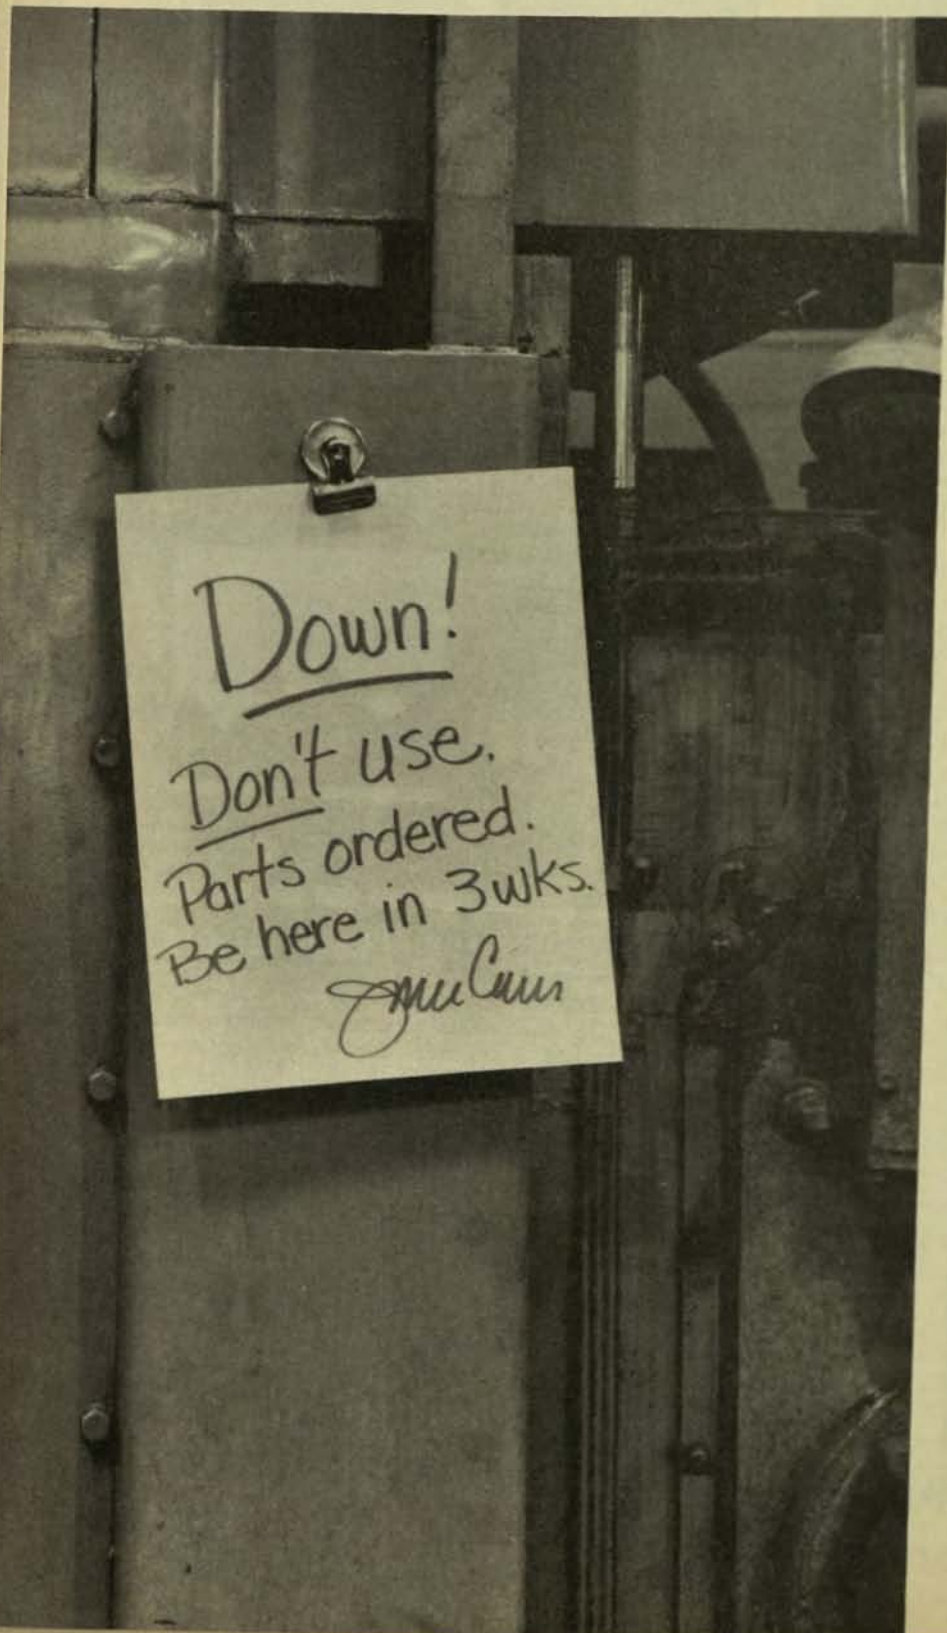 Down!
Don't use.
Parts ordered.
Be here in 3 wks.